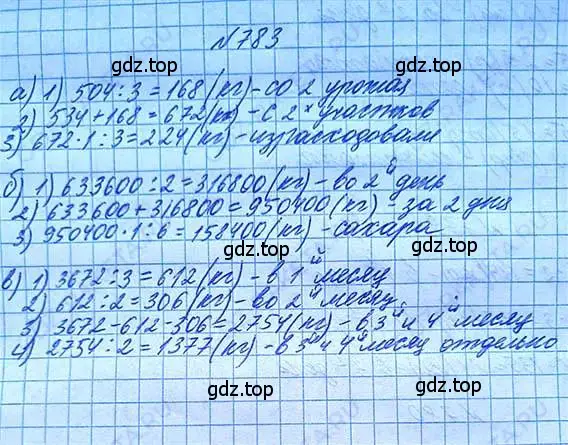 №783
gdz.top gdz.top
а) 1) 504:3=168(кг)-со 2 урожая
2) 534+168=672(кг)-с 2ˣ участков
3) 672·1:3=224(кг)-израсходовали
gdz.top gdz.top
б) 1) 633600:2=316800(кг)-во 2й день
2) 633600+316800=950400(кг)-за 2 дня
3) 950400·1:6=158400(кг)-сахара
gdz.top gdz.top
в) 1) 3672:3=612(кг)-в 1й месяц
2) 612:2=306(кг)-во 2й месяц
3) 3672-612-306=2754(кг)-в 3й и 4й месяц
4) 2754:2=1377(кг)-в 3й и 4й месяц отдельно
gdz.top gdz.top